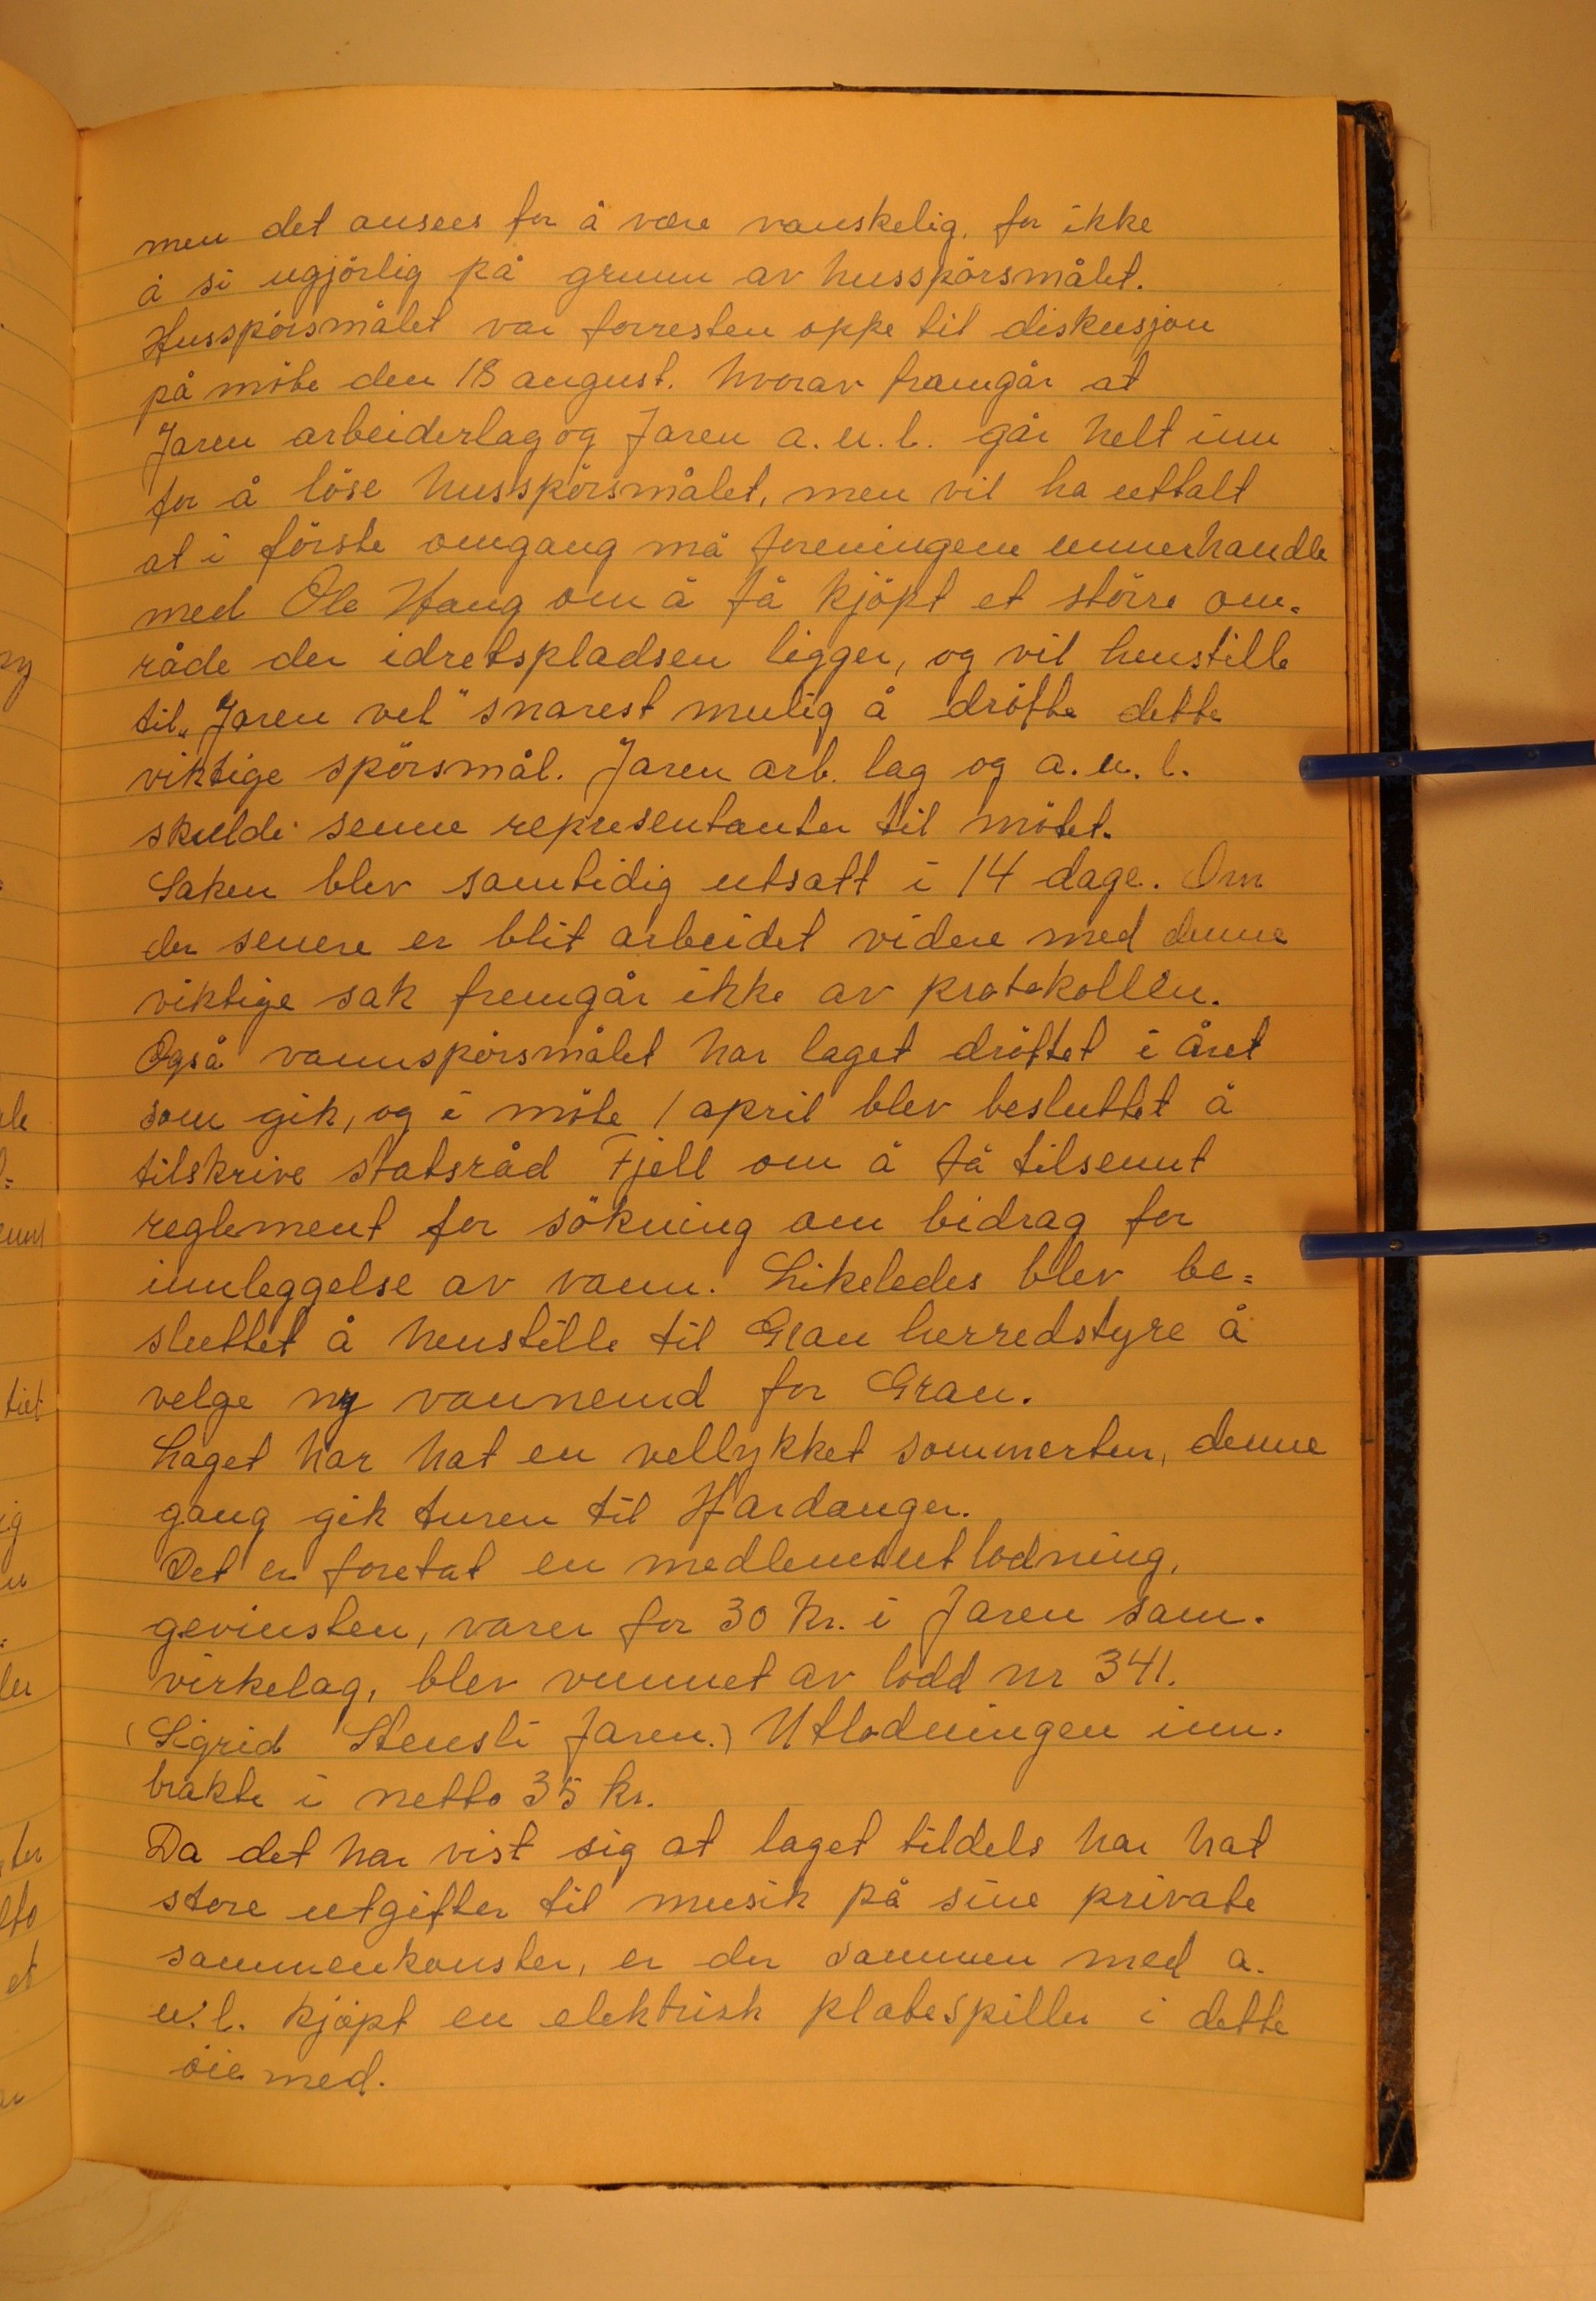 men det ansees for å være vanskelig, for ikke
å si ugjörlig på grunn av husspörsmålet.
Husspörsmålet var forresten oppe til diskusjon
på möte den 18 august. hvorav framgår at
Jaren arbeiderlag og Jaren a.u.l. går helt inn
for å löse husspörsmålet, men vil ha uttalt
at i förste omgang må foreningene unnerhandle
med Ole Haug om å få kjöpt et större om-
råde der idretspladsen ligger, og vil henstille
til „Jaren vel" snarest mulig å dröfte dette
viktige spörsmål. Jaren arb. lag og a.u.l.
skulde senne representanter til mötet.
Saken blev samtidig utsatt i 14 dage. Om
der senere er blit arbeidet videre med denne
viktige sak fremgår ikke av protokollen.
Også vannspörsmålet har laget dröftet i året
som gik, og i möte 1 april blev besluttet å
tilskrive statsråd Fjell om å få tilsennt
reglement for sökning om bidrag for
innleggelse av vann. Likeledes blev be=
sluttet å henstille til Gran herredstyre å
velge ny vannemd for Gran.
Laget har hat en vellykket sommertur, denne
gang gik turen til Hardanger.
Det er foretat en medlemsutlodning,
gevinsten, varer for 30 kr. i Jaren sam-
virkelag, blev vunnet av lodd nr 341.
(Sigrid Stensli Jaren.) Utlodningen inn-
brakte i netto 35 kr.
Da det har vist sig at laget tildels har hat
store utgifter til musik på sine private
sammenkonster, er der sammen med a.
u.l. kjöpt en elektrisk platespiller i dette
öiemed.